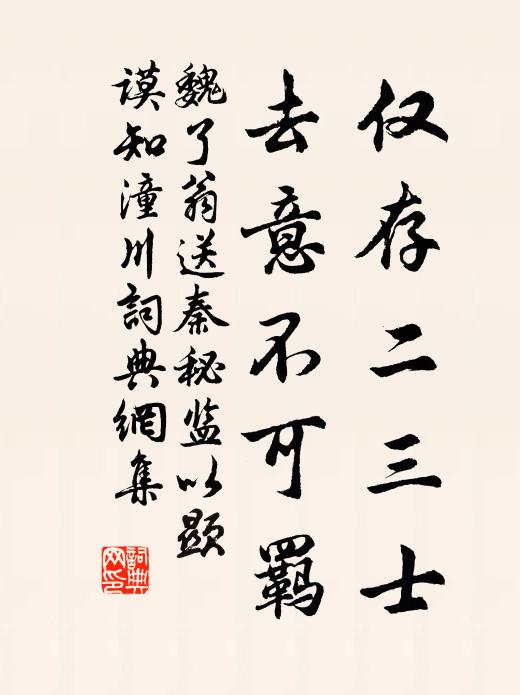 仅存二三士
去意不可羁
魏了翁送秦秘监以显
谟知潼川詞典網集
詞典网印